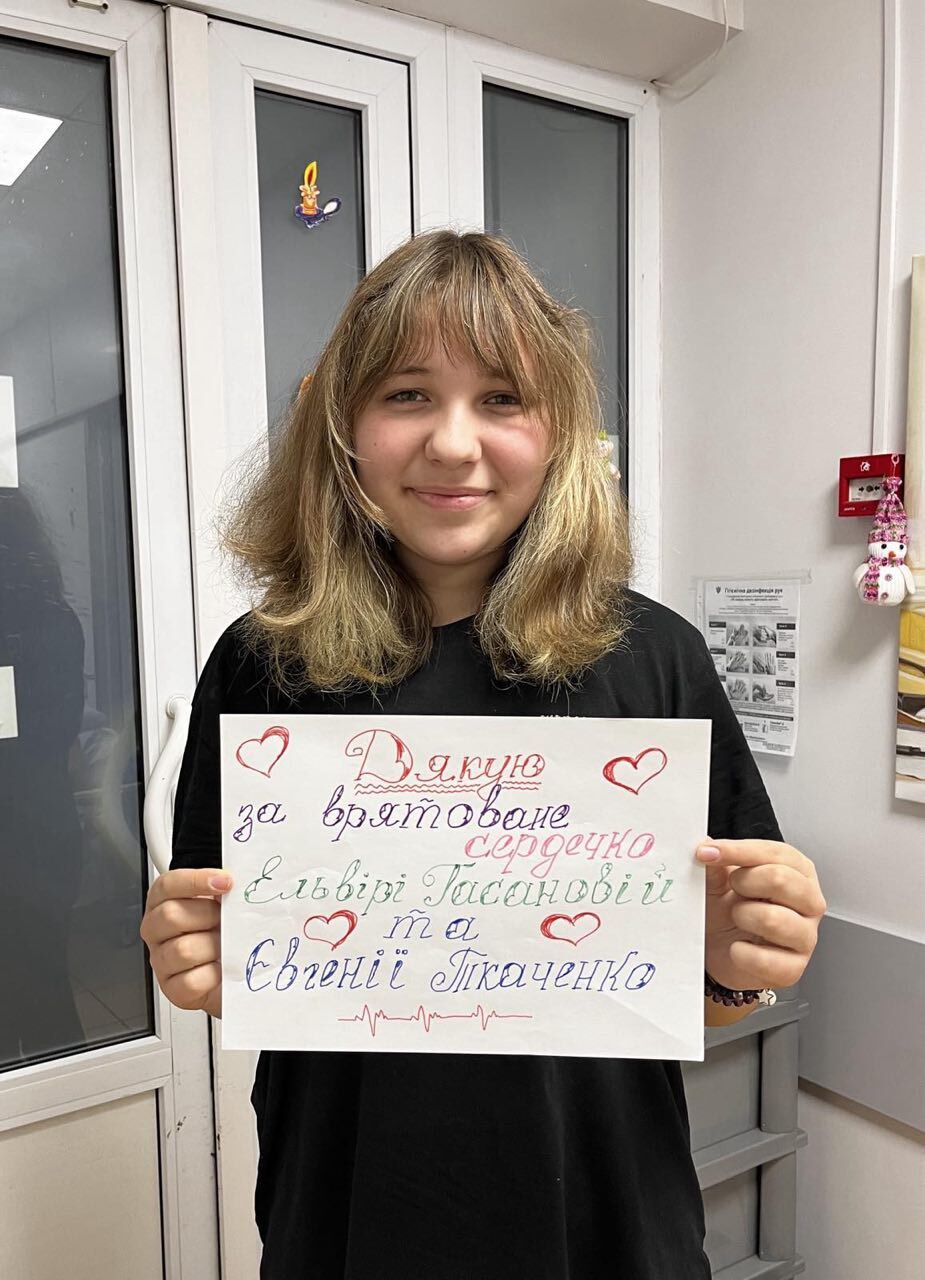 Дякую
за врятоване
сердечко
Ельвірі Гасановій
та
Євгенії Ткаченко
Гігієнічна дезінфекція рук